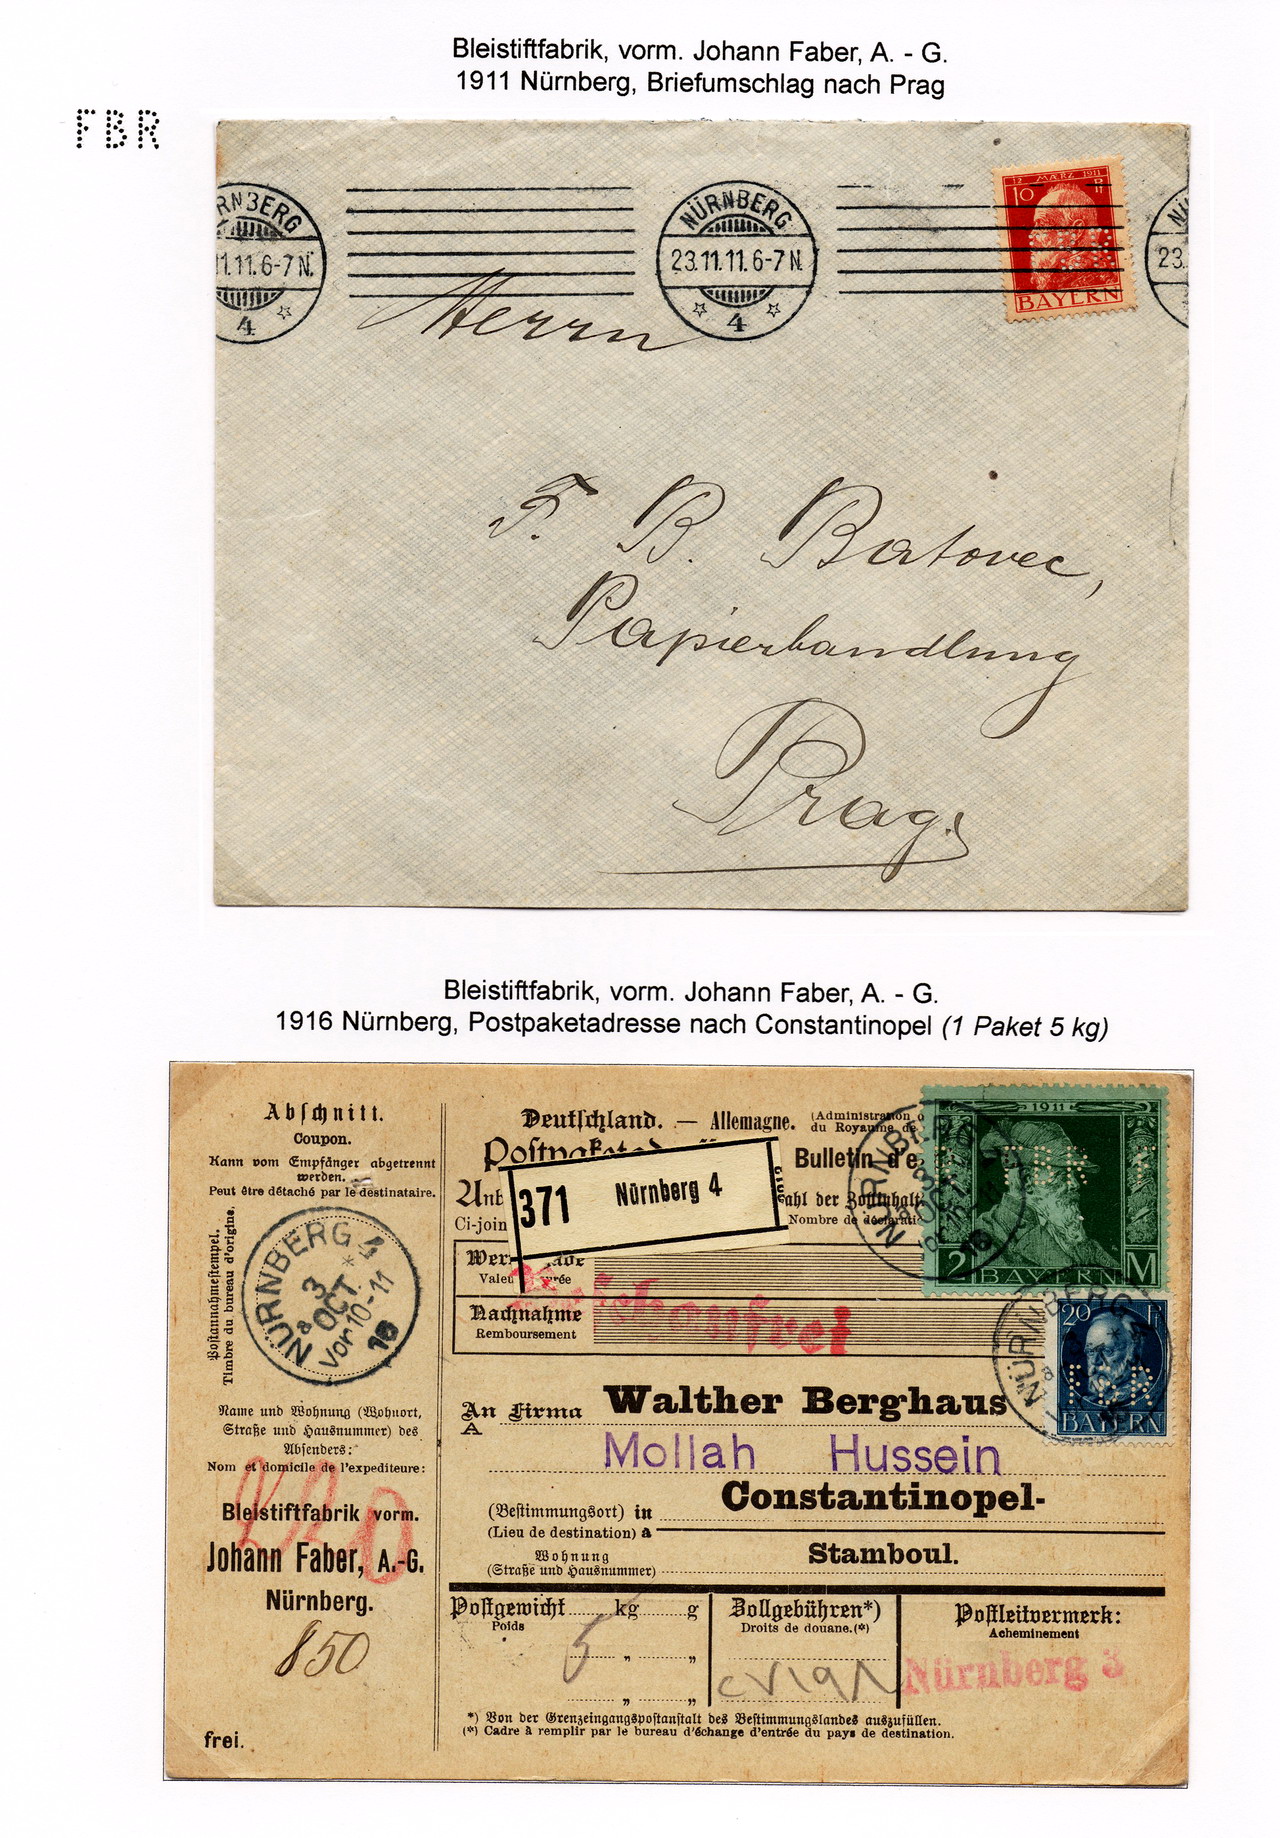 Bleistiftfabrik, vorm. Johann Faber, A. - G.
1911 Nürnberg, Briefumschlag nach Prag
FBR
RNBERG
11.11.6-7N.
4
NÜRNBERG
23.11.11.6-7N.
4
12 MÄRZ 1911
10 Pf
BAYERN
NÜ
23.
Herrn
F. B. Batovec,
Papierhandlung
Prag.
Bleistiftfabrik, vorm. Johann Faber, A. - G.
1916 Nürnberg, Postpaketadresse nach Constantinopel (1 Paket 5 kg)
Abschnitt.
Coupon.
Kann vom Empfänger abgetrennt
werden.
Peut être détaché par le destinataire.
Postannahmestempel.
Timbre du bureau d'origine.
NÜRNBERG 4
3
OCT.
a
Vor 10-11
16
Name und Wohnung (Wohnort,
Straße und Hausnummer) des
Absenders:
Nom et domicile de l'expediteure:
Bleistiftfabrik vorm.
Johann Faber, A.-G.
Nürnberg.
850
frei.
Deutschland. — Allemagne.
(Administration
du Royaume de
Bulletin d'e
371 Nürnberg 4
Ci-join
ahl der Zollinhalt
Nombre de déclarati
Valeu
Nachnahme
Remboursement
1911
FBR
2 BAYERN M
NÜRNBERG
OCT.
16
20 Pf
FBR
BAYERN
NÜRNBERG
An Firma Walther Berghaus
A
Mollah Hussein
(Bestimmungsort) in Constantinopel-
(Lieu de destination) à
Wohnung
(Straße und Hausnummer) Stamboul.
Postgewicht kg g
Poids
5 „ „
„ „
Zollgebühren*)
Droits de douane.(*)
Postleitvermerk:
Acheminement
Nürnberg 3
*) Von der Grenzeingangspostanstalt des Bestimmungslandes auszufüllen.
(*) Cadre à remplir par le bureau d'échange d'entrée du pays de destination.